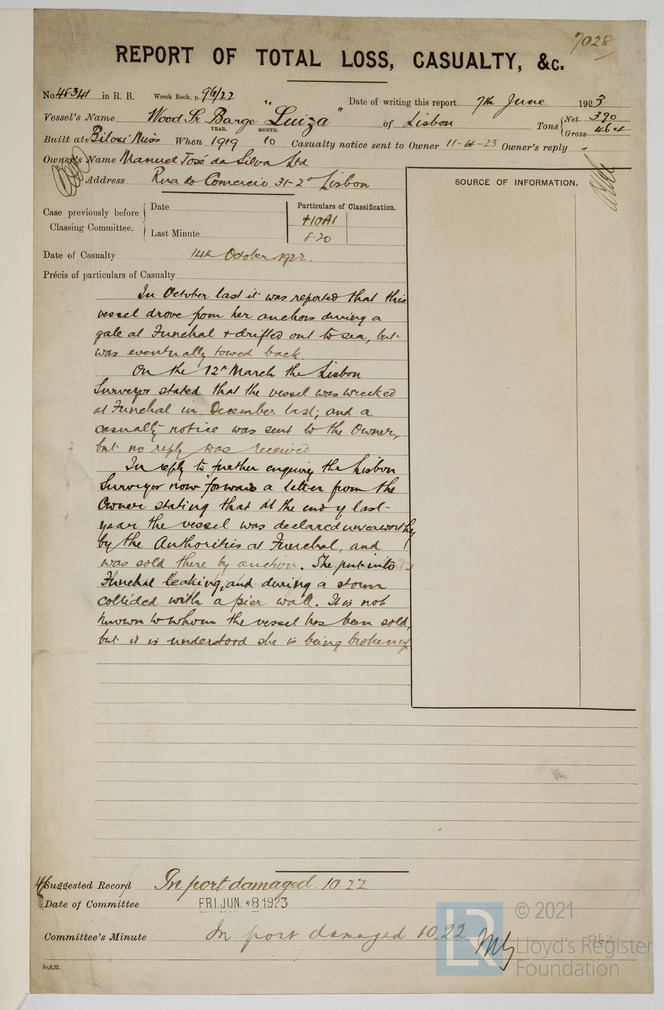 7028
REPORT OF TOTAL LOSS, CASUALTY, &c.
No 48341 in R. B. Wreck Book, p. 96/22
Date of writing this report 7th June 1923
Vessel's Name Wood Sr Barge "Luiza" of Lisbon Tons { Net 390
Gross 464
Built at Biloxi Miss When YEAR. 1919 MONTH. 10 Casualty notice sent to Owner 11-4-23 Owner's reply -
Owner's Name Manuel José da Silva Ltd
Address Rua do Comercio 31-2º Lisbon
SOURCE OF INFORMATION.
Case previously before Classing Committee. { Date
Last Minute
Particulars of Classification.
+10A1
8.20
Date of Casualty 14th October 1922.
Précis of particulars of Casualty
In October last it was reported that this
vessel drove from her anchors during a
gale at Funchal & drifted out to sea, but
was eventually towed back.
On the 12th March the Lisbon
Surveyor stated that the vessel was wrecked
at Funchal in December last; and a
casualty notice was sent to the Owner,
but no reply was received.
In reply to further enquiry the Lisbon
Surveyor now forwards a letter from the
Owner stating that at the end of last
year the vessel was declared unseaworthy
by the Authorities at Funchal, and
was sold there by auction. She put into
Funchal leaking, and during a storm
collided with a pier wall. It is not
known to whom the vessel has been sold,
but it is understood she is being broken up
Suggested Record In port damaged 10.22
Date of Committee FRI. JUN. 8 1923
Committee's Minute In port damaged 10.22
© 2021
Lloyd's Register
Foundation